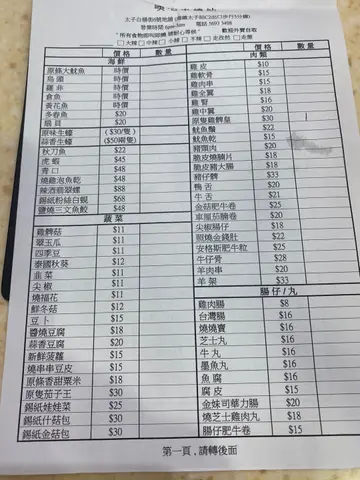 太子白楊街號地舖 (港鐵太子站C2出口步行5分鐘)
營業時間 6pm-3am 電話 5693 5408
*所有食物即叫即燒,請耐心等候* 歡迎外賣自取
□大辣 □中辣 □小辣 □不辣 □走孜然 □走葱
價格 數量
海鮮
原條大魷魚 時價
烏頭 時價
羅非 時價
倉魚 時價
黃花魚 時價
多春魚 $20
扇貝 $20
原味生蠔 ($30/隻)
蒜香生蠔 ($50兩隻)
秋刀魚 $22
虎蝦 $45
青口 $48
燒雞泡魚乾 $48
辣酒翡翠螺 $88
錫紙粉絲白蜆 $68
鹽燒三文魚鮫 $48
蔬菜
雞髀菇 $11
翠玉瓜 $11
四季豆 $11
泰國秋葵 $12
韭菜 $11
尖椒 $11
燒福花 $11
鮮冬菇 $12
豆卜 $15
醬燒豆腐 $18
蒜香豆腐 $20
新鮮菠蘿 $15
燒串串豆皮 $15
原條香甜粟米 $18
原隻茄子王 $30
錫紙娃娃菜 $25
錫紙什菇包 $30
錫紙金菇包 $30
價格 數量
肉類
雞皮 $10
雞軟骨 $15
雞肉串 $15
雞全翼 $18
雞腎 $16
雞中翼 $20
原隻雞髀皇 $30 /
魷魚鬚 $22
魷魚乾 $15
豬頸肉 $20
脆皮燒腩片 $18
脆皮豬大腸 $18
豬仔髀 $33
鴨舌 $20
牛舌 $21
金菇肥牛卷 $25
車厘茄腩卷 $20
尖椒腸仔 $18
照燒金錢肚 $22
安格斯肥牛粒 $25
牛仔骨 $28
羊肉串 $20
羊架 $33
腸仔/丸
雞肉腸 $8
台灣腸 $16
燒燒賣 $16
芝士丸 $16
牛丸 $16
墨魚丸 $16
魚腐 $16
腐皮 $15
金妹司華力腸 $20
燒芝士雞肉丸 $18
腸仔肥牛卷 $15
第一頁,請轉後面